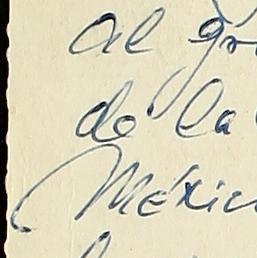 al gr
de la
Méxic